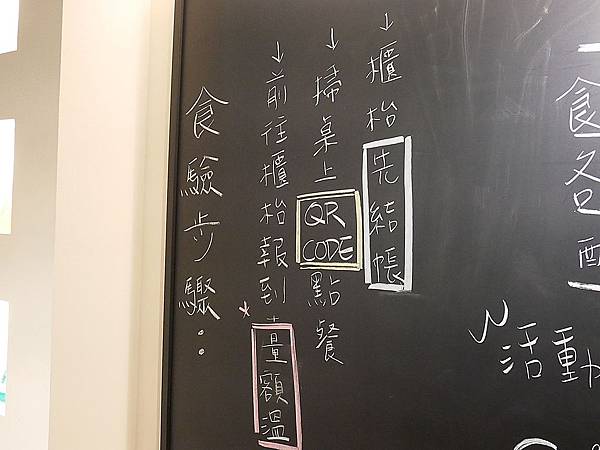 食驗步驟：
↓前往櫃枱報到*量額溫
↓掃桌上QR CODE點餐
↓櫃枱先結帳
活動